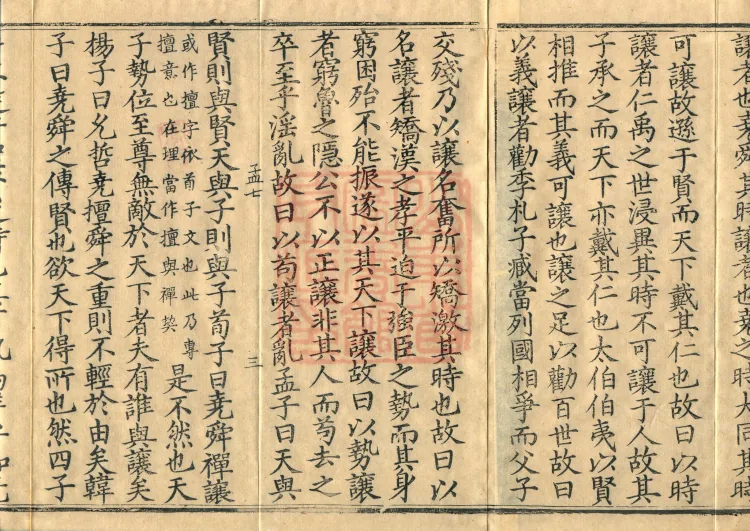 讓者也堯舜其時讓者也堯之時大同其時
可讓故遜于賢而天下戴其仁也故曰以時
讓者仁禹之世浸異其時不可讓于人故其
子承之而天下亦戴其仁也太伯伯夷以賢
相推而其義可讓也讓之足以勸百世故曰
以義讓者勸季札子臧當列國相爭而父子
交殘乃以讓名奮所以矯激其時也故曰以
名讓者矯漢之孝平迫于強臣之勢而其身
窮困殆不能振遂以其天下讓故曰以勢讓
者窮魯之隱公不以正讓非其人而苟去之
卒至乎淫亂故曰以苟讓者亂孟子曰天與
孟七
三
賢則與賢天與子則與子荀子曰堯舜禪讓
或作擅字依荀子文也此乃專
擅意也在理當作擅與禪䒶
是不然也天
子勢位至尊無敵於天下者夫有誰與讓矣
揚子曰允哲堯擅舜之重則不輕於由矣韓
子曰堯舜之傳賢也欲天下得所也然四子